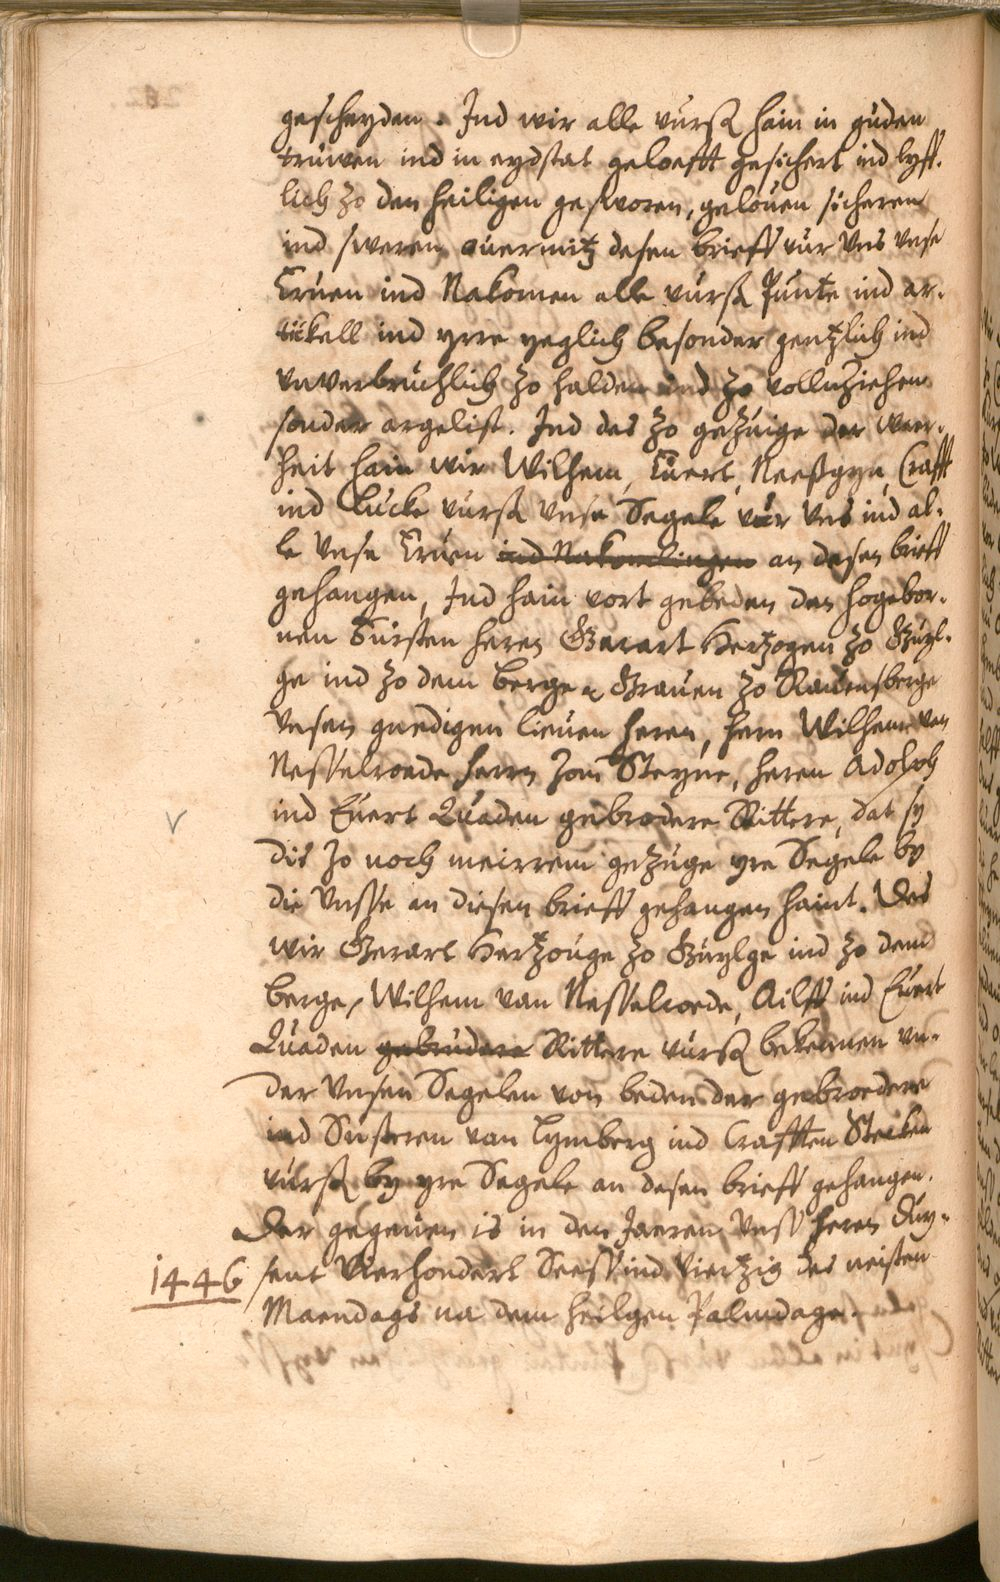 gescheyden. Ind wir alle vurß hain in guden
truwen ind in eydstat geloefft gesichert ind lyff-
lich zo den heiligen gesworen, gelouen sicheren
ind sweren ouermitz desen brieff vur vns vnse
Eruen ind Nakomen alle vurß Punte ind ar-
tickell ind yrre yeglich besonder gentzlich ind
vnverbruchlich zo halden ind zo vollnziehen
sonder argelist. Ind des zo gezuige der waer-
heit hain wir Wilhem, Euert, Neeßgyn, Crafft
ind Lucke vurß vnse Segele vur vns ind al-
le vnse Eruen ind Nakomlingen an desen brieff
gehangen, Ind hain vort gebeden den hogebor-
nen Fursten heren Gerart Hertzogen zo Guyl-
ge ind zo dem berge Grauen zo Rauensberge
vnsen gnedigen lieuen heren, hern Wilhem van
Nesselroede herrn zom Steyne, heren Adolph
ind Euert Quaden gebrodere Rittere, dat sy
dis zo noch meirrem gezuge yre Segele by
die vnsse an diesen brieff gehangen haint. Des
wir Gerart Hertzouge zo Guylge ind zo dem
berge, Wilhem van Nesselroede, Ailff ind Euert
Quaden gebrudere Rittere vurß bekennen vn-
der vnsen Segelen von beden der gebroedere
ind Susteren van Lymberg ind Crafften Stecken
vurß by yre Segele an desen brieff gehangen.
Der gegeuen is in den Jaeren vnss heren Duy-
1446 sent Vierhondert Seess ind Viertzig des neisten
Maendags na dem heilgen Palmdage.